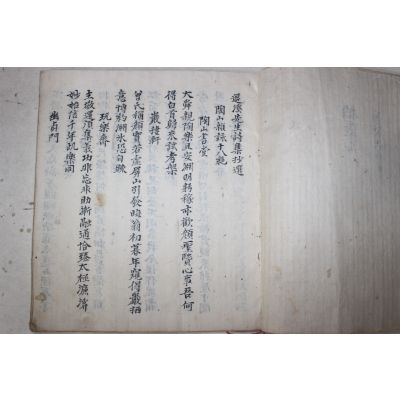 退溪先生詩集抄選
陶山雜詠十八絶
陶山書堂
大舜親陶樂且安淵明躬稼亦歡顔聖賢心事吾何
得白首歸來試考槃
巖捿軒
曾氏稱顔實若虛屏山引發晦翁初暮年窺得巖栖
意博約淵氷恐自疎
玩樂齋
主敬還須集義功非忘非助漸融通恰臻太極濂溪
妙始信千年此樂同
幽貞門